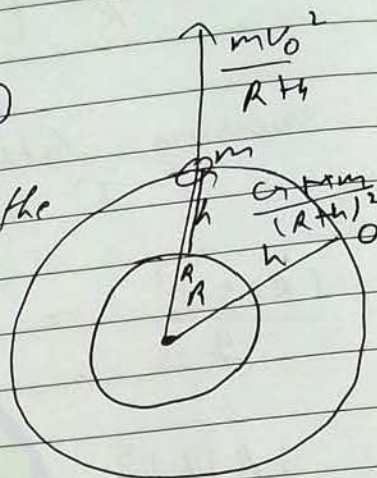 mv₀²
R+h
m
the
h
GMm
(R+h)²
h
R
R